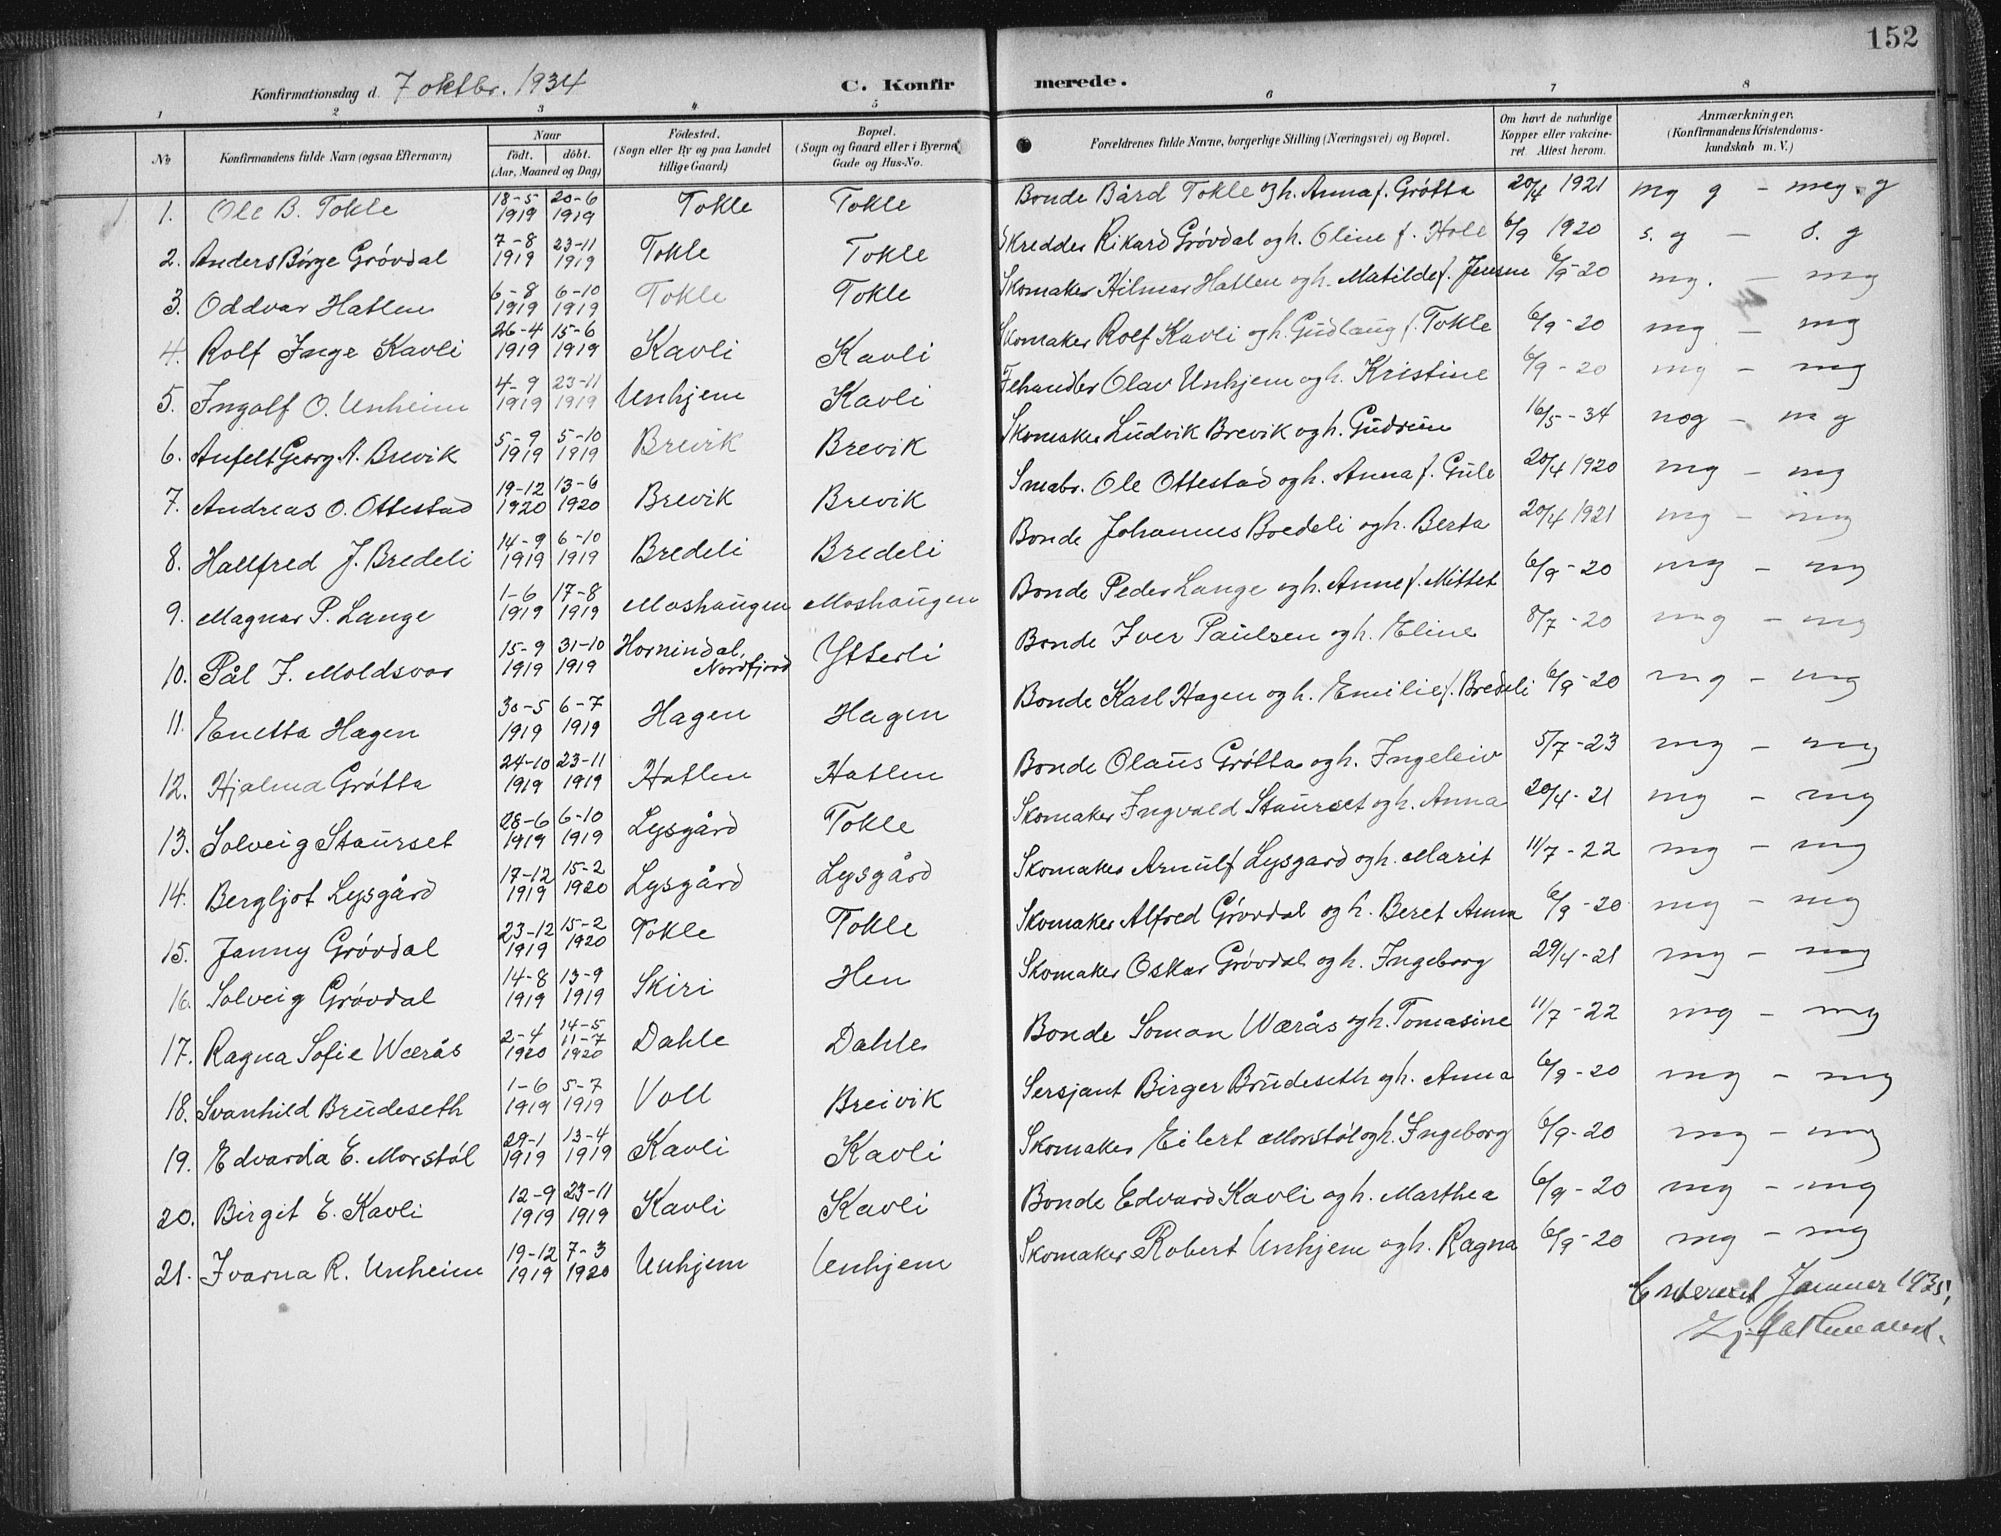 152
Konfirmationsdag d. 7 oktbr. 1934 C. Konfirmerede.
1 2 3 4 5 6 7 8
No Konfirmandens fulde Navn (ogsaa Efternavn) Naar født. døbt. (Aar, Maaned og Dag) Fødested. (Sogn eller By og paa Landet tillige Gaard) Bopæl. (Sogn og Gaard eller i Byerne Gade og Hus-No. Forældrenes fulde Navne, borgerlige Stilling (Næringsvei) og Bopæl. Om havt de naturlige Kopper eller vakcineret. Attest herom. Anmærkninger. (Konfirmandens Kristendomskundskab m. V.)
1. Ole B. Tokle 18-5 1919 20-6 1919 Tokle Tokle Bonde Bård Tokle og h. Anna f. Grøtta 20/4 1921 mg g - meg. g
2. Anders Børge Grøvdal 7-8 1919 23-11 1919 Tokle Tokle Skredder Rikard Grøvdal og h. Oline f. Hole 6/9 1920 s. g - s. g
3. Oddvar Hatlen 6-8 1919 6-10 1919 Tokle Tokle Skomaker Hilmar Hatlen og h. Matilde f. Jensen 6/9-20 mg. - mg
4. Rolf Inge Kavli 26-4 1919 15-6 1919 Kavli Kavli Skomaker Rolf Kavli og h. Gudlaug f. Tokle 6/9-20 mg - mg
5. Ingolf O. Unheim 4-9 1919 23-11 1919 Unhjem Kavli Fehandler Olav Unhjem og h. Kristine 6/9-20 mg - mg
6. Anfelt Georg A. Brevik 5-9 1919 5-10 1919 Brevik Brevik Skomaker Ludvik Brevik og h. Gudrun 16/5-34 nog - m g
7. Andreas O. Ottestad 19-12 1920 13-6 1920 Brevik Brevik Smabr. Ole Ottestad og h. Anna f. Gule 20/4 1920 mg - mg
8. Hallfred J. Bredeli 14-9 1919 6-10 1919 Bredeli Bredeli Bonde Johannes Bredeli og h. Berta 20/4 1921 mg - mg
9. Magnar P. Lange 1-6 1919 17-8 1919 Moshaugen Moshaugen Bonde Peder Lange og h. Anne f. Mittet 6/9-20 mg - mg
10. Pål I. Moldsvor 15-9 1919 31-10 1919 Hornindal, Nordfjord Ytterli Bonde Iver Paulsen og h. Eline 8/7-20 mg - mg
11. Enetta Hagen 30-5 1919 6-7 1919 Hagen Hagen Bonde Karl Hagen og h. Emilie f. Bredeli 6/9-20 mg - mg
12. Hjalma Grøtta 24-10 1919 23-11 1919 Hatlen Hatlen Bonde Olaus Grøtta og h. Ingeleiv 5/7-23 mg - mg
13. Solveig Staurset 28-6 1919 6-10 1919 Lysgård Tokle Skomaker Ingvald Staurset og h. Anna 20/4-21 mg - mg
14. Bergljot Lysgård 17-12 1919 15-2 1920 Lysgård Lysgård Skomaker Arnulf Lysgard og h. Marit 11/7-22 mg - mg
15. Janny Grøvdal 23-12 1919 15-2 1920 Tokle Tokle Skomaker Alfred Grøvdal og h. Beret Anna 6/9-20 mg - mg
16. Solveig Grøvdal 14-8 1919 13-9 1919 Skiri Hen Skomaker Oskar Grøvdal og h. Ingeborg 29/4-21 mg - mg
17. Ragna Sofie Wærås 2-4 1920 14-5 11-7 1920 Dahle Dahle Bonde Soman Wærås og h. Tomasine 11/7-22 mg - mg
18. Svanhild Brudeseth 1-6 1919 5-7 1919 Voll Breivik Sersjant Birger Brudeseth og h. Anna 6/9-20 mg - mg
19. Edvarda E. Morstøl 29-1 1919 13-4 1919 Kavli Kavli Skomaker Eilert Morstøl og h. Ingeborg 6/9-20 mg - mg
20. Birgit E. Kavli 12-9 1919 23-11 1919 Kavli Kavli Bonde Edvard Kavli og h. Marthea 6/9-20 mg - mg
21. Ivarna R. Unheim 19-12 1919 7-3 1920 Unhjem Unhjem Skomaker Robert Unhjem og h. Ragna 6/9-20 mg - mg
Januar 1935,